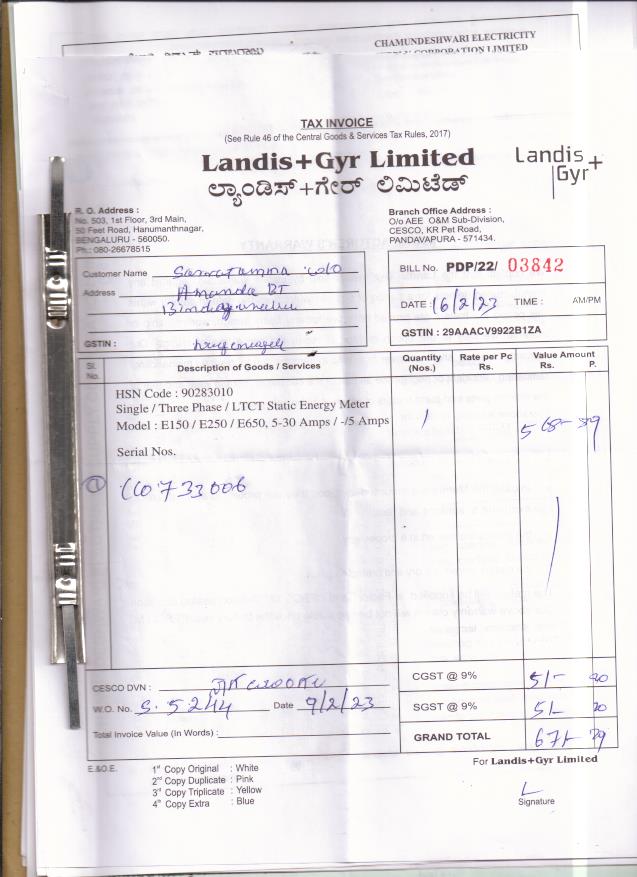 CHAMUNDESHWARI ELECTRICITY
CORPORATION LIMITED
TAX INVOICE
(See Rule 46 of the Central Goods & Services Tax Rules, 2017)
Landis+Gyr Limited
Landis+
Gyr
ಲ್ಯಾಂಡಿಸ್+ಗೇರ್ ಲಿಮಿಟೆಡ್
R. O. Address :
No. 503, 1st Floor, 3rd Main,
50 Feet Road, Hanumanthnagar,
BENGALURU - 560050.
Ph.: 080-26678515
Branch Office Address :
O/o AEE O&M Sub-Division,
CESCO, KR Pet Road,
PANDAVAPURA - 571434.
Customer Name
Address
GSTIN :
BILL No. PDP/22/ 03842
DATE : 16/2/23 TIME : AM/PM
GSTIN : 29AAACV9922B1ZA
Sl. No. Description of Goods / Services Quantity (Nos.) Rate per Pc Rs. Value Amount Rs. P.
HSN Code : 90283010
Single / Three Phase / LTCT Static Energy Meter
Model : E150 / E250 / E650, 5-30 Amps / -/5 Amps 1
Serial Nos.
CESCO DVN :
W.O. No. S. 5244 Date 9/2/23
Total Invoice Value (In Words) :
CGST @ 9%
SGST @ 9%
GRAND TOTAL
E.&O.E.
1st Copy Original : White
2nd Copy Duplicate : Pink
3rd Copy Triplicate : Yellow
4th Copy Extra : Blue
For Landis+Gyr Limited
Signature